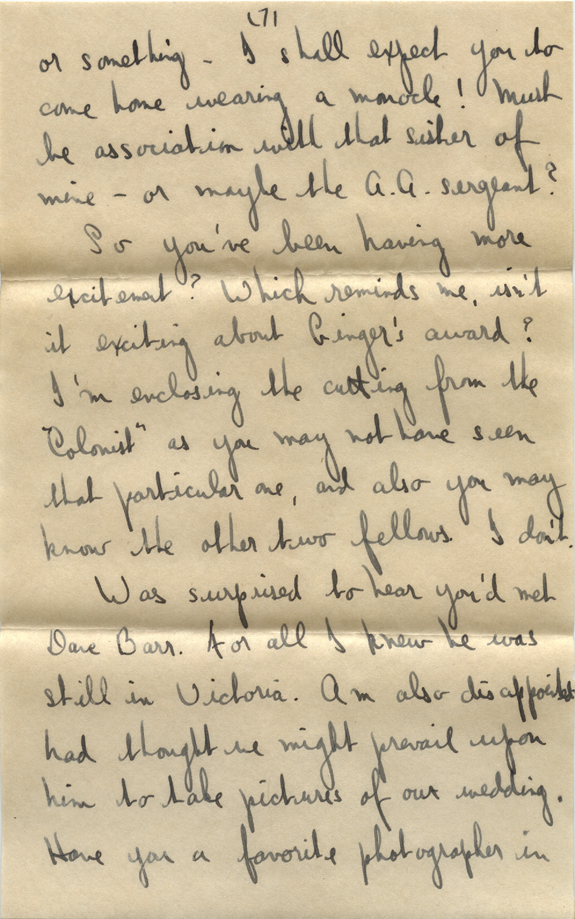 (7)
or something - I shall expect you to
come home wearing a monocle! Must
be association with that sister of
mine - or maybe the A.A. sergeant?
So you've been having more
excitement? Which reminds me, isn't
it exciting about Ginger's award?
I'm enclosing the cutting from the
"Colonist" as you may not have seen
that particular one, and also you may
know the other two fellows. I don't.
Was surprised to hear you'd met
Dave Barr. For all I knew he was
still in Victoria. Am also disappointed
had thought we might prevail upon
him to take pictures of our wedding.
Have you a favorite photographer in